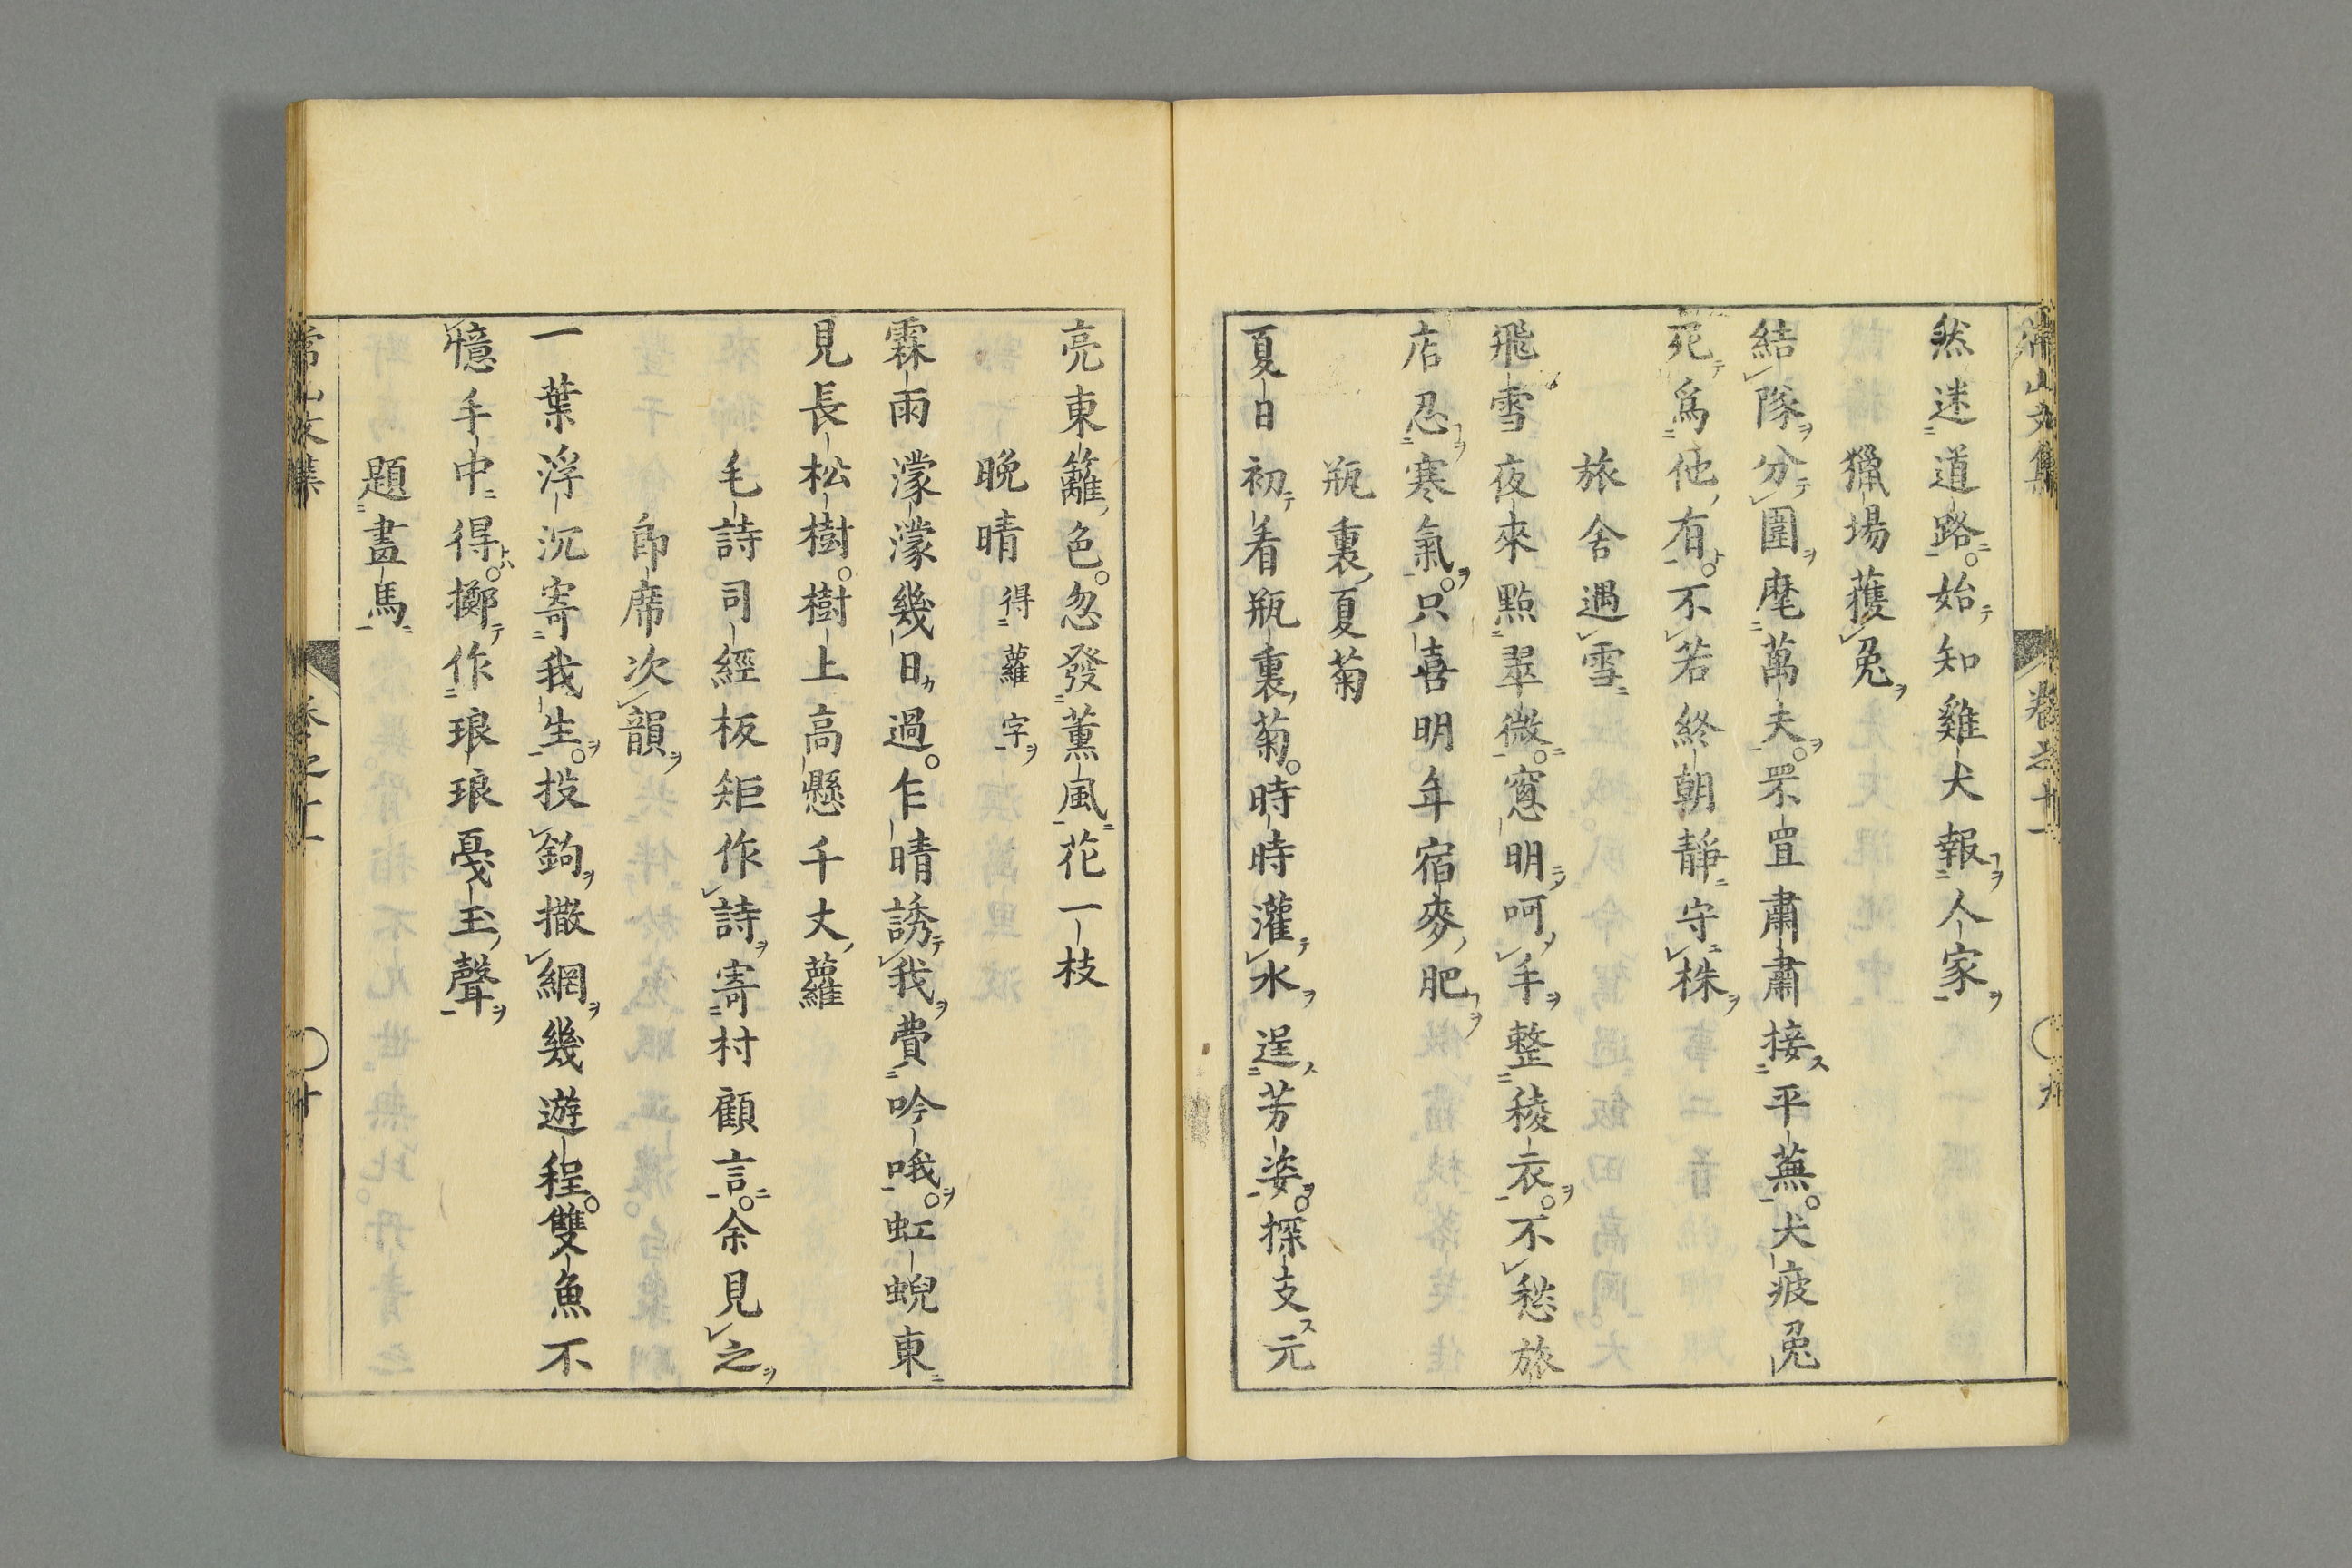 常山文集 卷之十一 〇九
然迷道路。始知雞犬報人家
獵場獲兔
結隊分圍麾萬夫。罘罝肅肅接平蕪。犬疲兔
死為他有。不若終朝靜守株
旅舍遇雪
飛雪夜來點翠微。窓明呵手整稜衣。不愁旅
店忍寒氣。只喜明年宿麥肥
瓶裏夏菊
夏日初看瓶裏菊。時時灌水逞芳姿。探支元
亮東籬色。忽發薫風花一枝
晩晴 得蘿字
霖雨濛濛幾日過。乍晴誘我費吟哦。虹蜺東
見長松樹。樹上高懸千丈蘿
毛詩司經板矩作詩寄村顧言。余見之
即席次韻
一葉浮沉寄我生。投鉤撒網幾遊程。雙魚不
憶手中得。擲作琅琅戞玉聲
題畫馬
常山文集 卷之十一 〇十